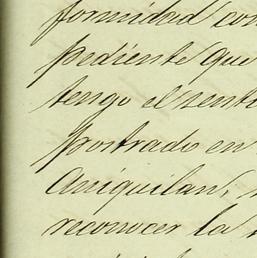 formidad con
pediente que
tengo el senti
postrado en
aniquilan,
reconocer la